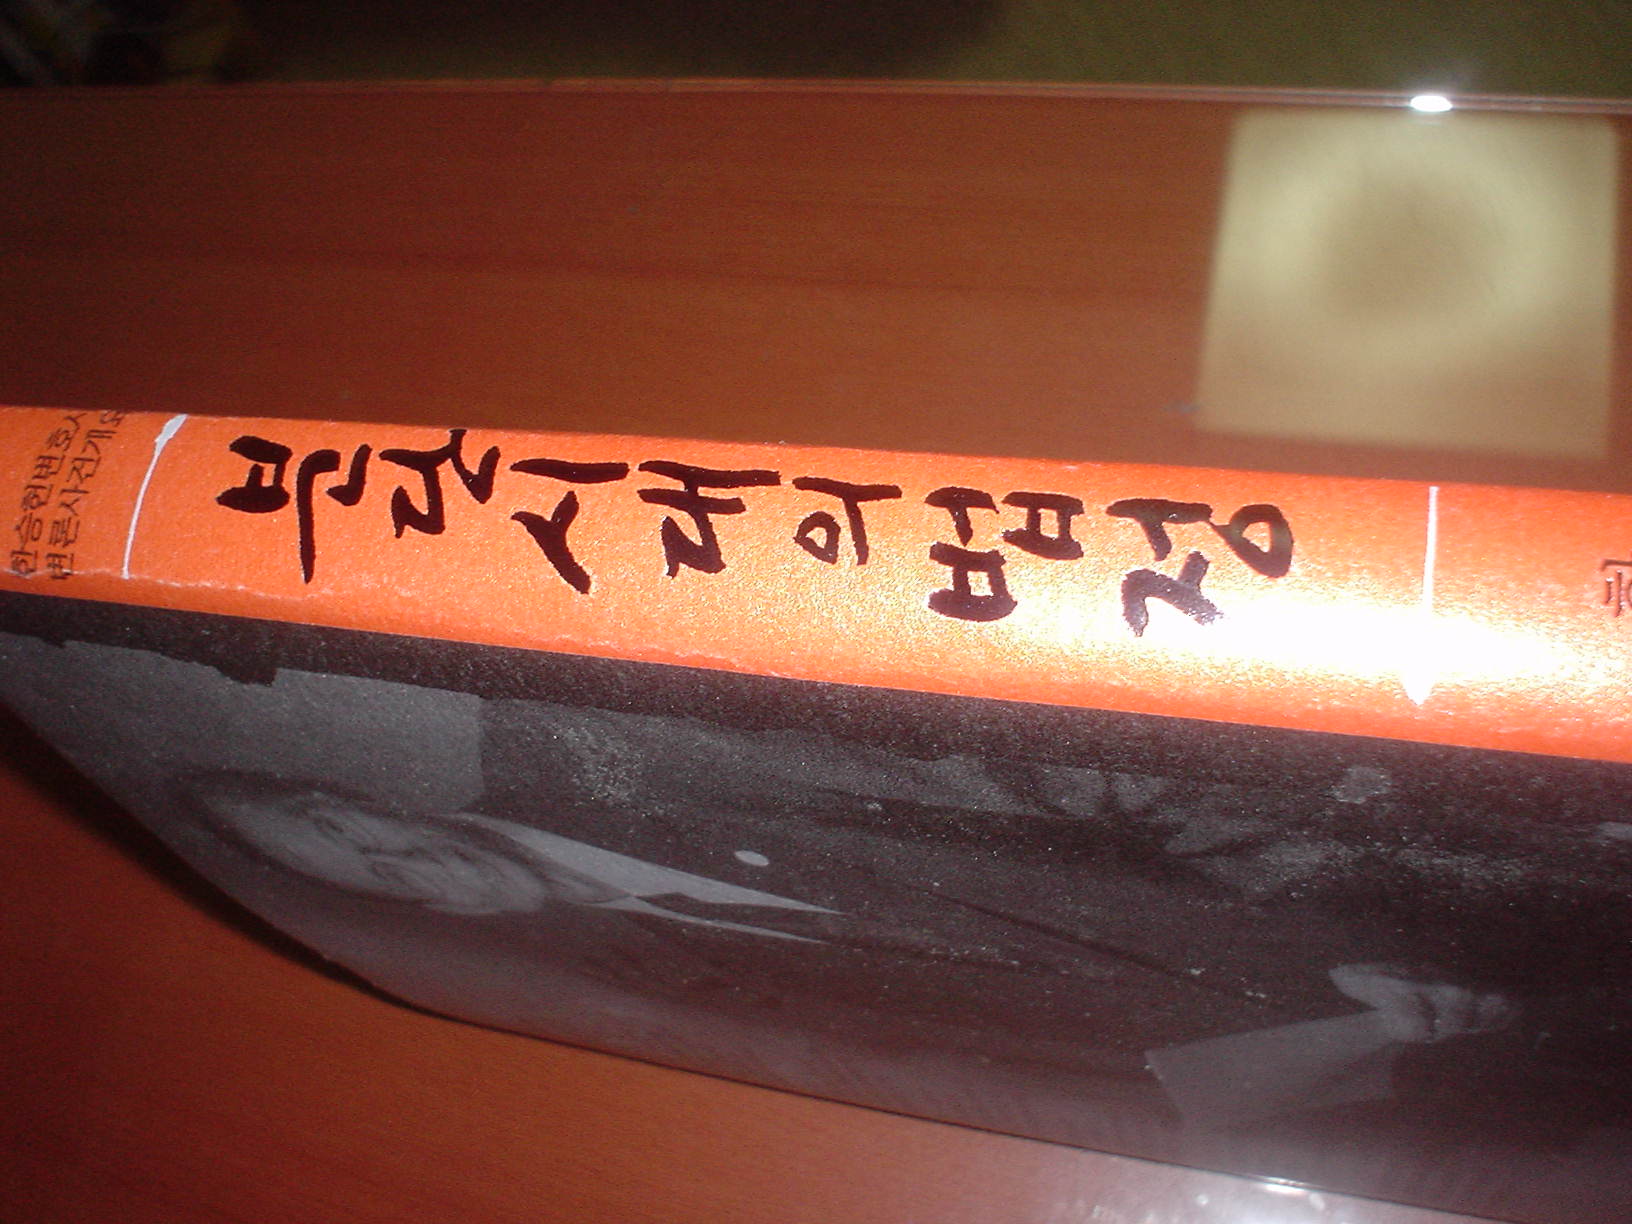 한승헌변호사
변론사건개요
분단시대의 법정